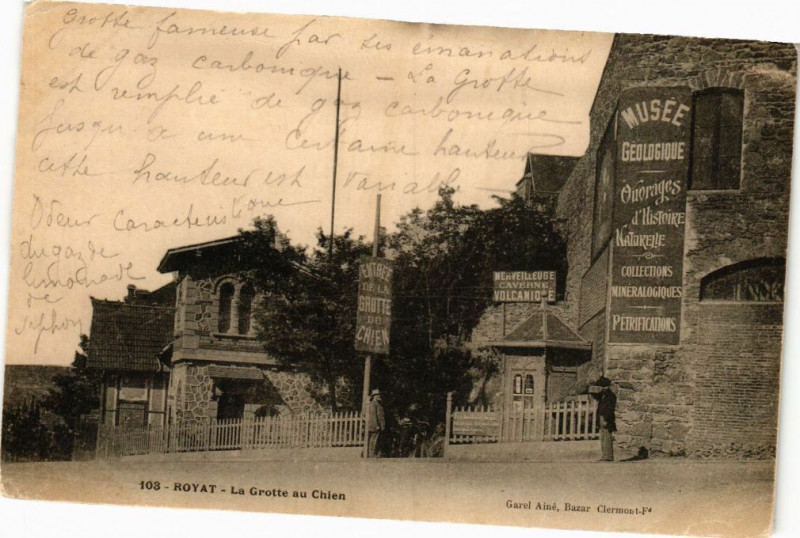 Grotte fameuse par ses émanations
de gaz carbonique - La Grotte
est remplie de gaz carbonique
jusqu'a une certaine hauteur
cette hauteur est variable
Odeur caracteristique
du gaz de
limonade
de
siphon
MUSÉE
GÉOLOGIQUE
Ouvrages
d'Histoire
Naturelle
COLLECTIONS
MINERALOGIQUES
PÉTRIFICATIONS
ENTRÉE
DE LA
GROTTE
DU
CHIEN
MERVEILLEUSE
CAVERNE
VOLCANIQUE
103 - ROYAT - La Grotte au Chien
Garel Ainé, Bazar Clermont-Fd